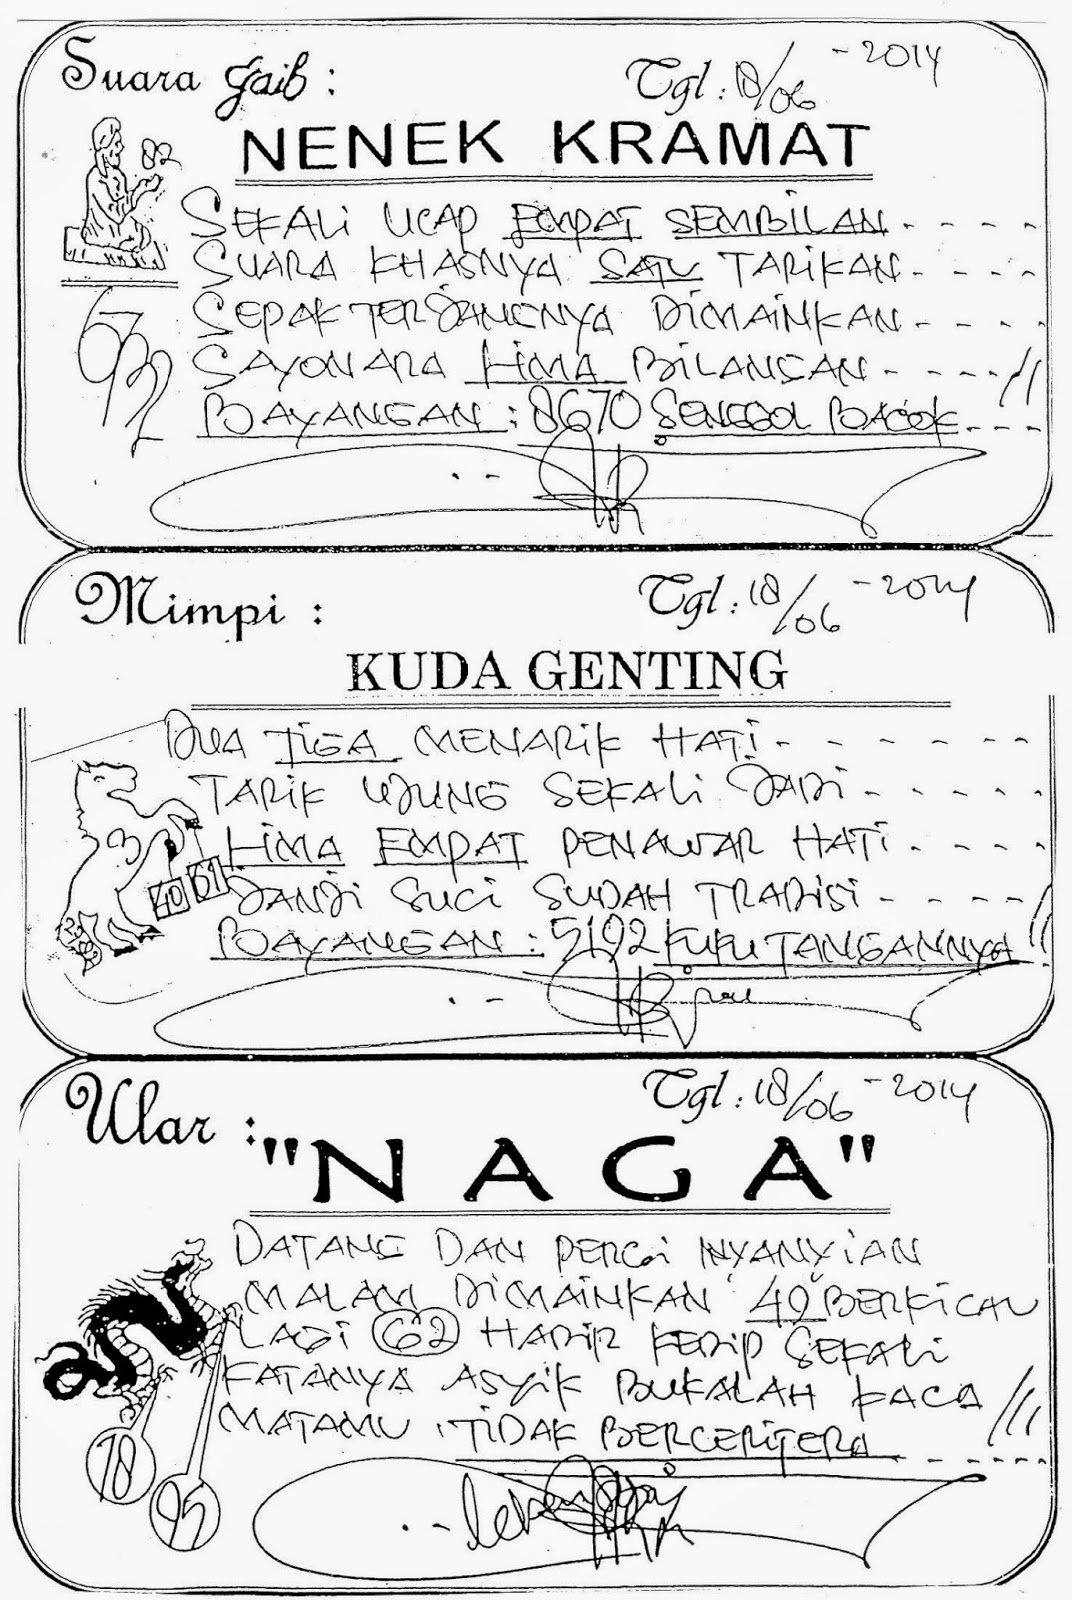 Suara Gaib : Tgl : 18/06 - 2014
NENEK KRAMAT
82
SEKALI UCAP EMPAT SEMBILAN - - - - -
SUARA KHASNYA SATU TARIKAN - - - - -
SEPAK TERJANGNYA DIMAINKAN - - - - -
SAYONARA LIMA BILANGAN - - - - - //
BAYANGAN : 8670 SENGGOL BACOK - - -
Mimpi : Tgl : 18/06 - 2014
KUDA GENTING
DUA TIGA MENARIK HATI - - - - - - -
TARIK UJUNG SEKALI JADI - - - - - -
LIMA EMPAT PENAWAR HATI - - - - -
40 61
JANJI SUCI SUDAH TRADISI - - - - - //
BAYANGAN : 5192 KUKU TANGANNYA //
Ular : Tgl : 18/06 - 2014
"NAGA"
DATANG DAN PERGI NYANYIAN
MALAM DIMAINKAN 49 BERKICAU
LAGI 62 HADIR KEDIP SEKALI
KATANYA ASYIK BUKALAH KACA ///
MATAMU , TIDAK BERCERITERA - - - - -
78
95